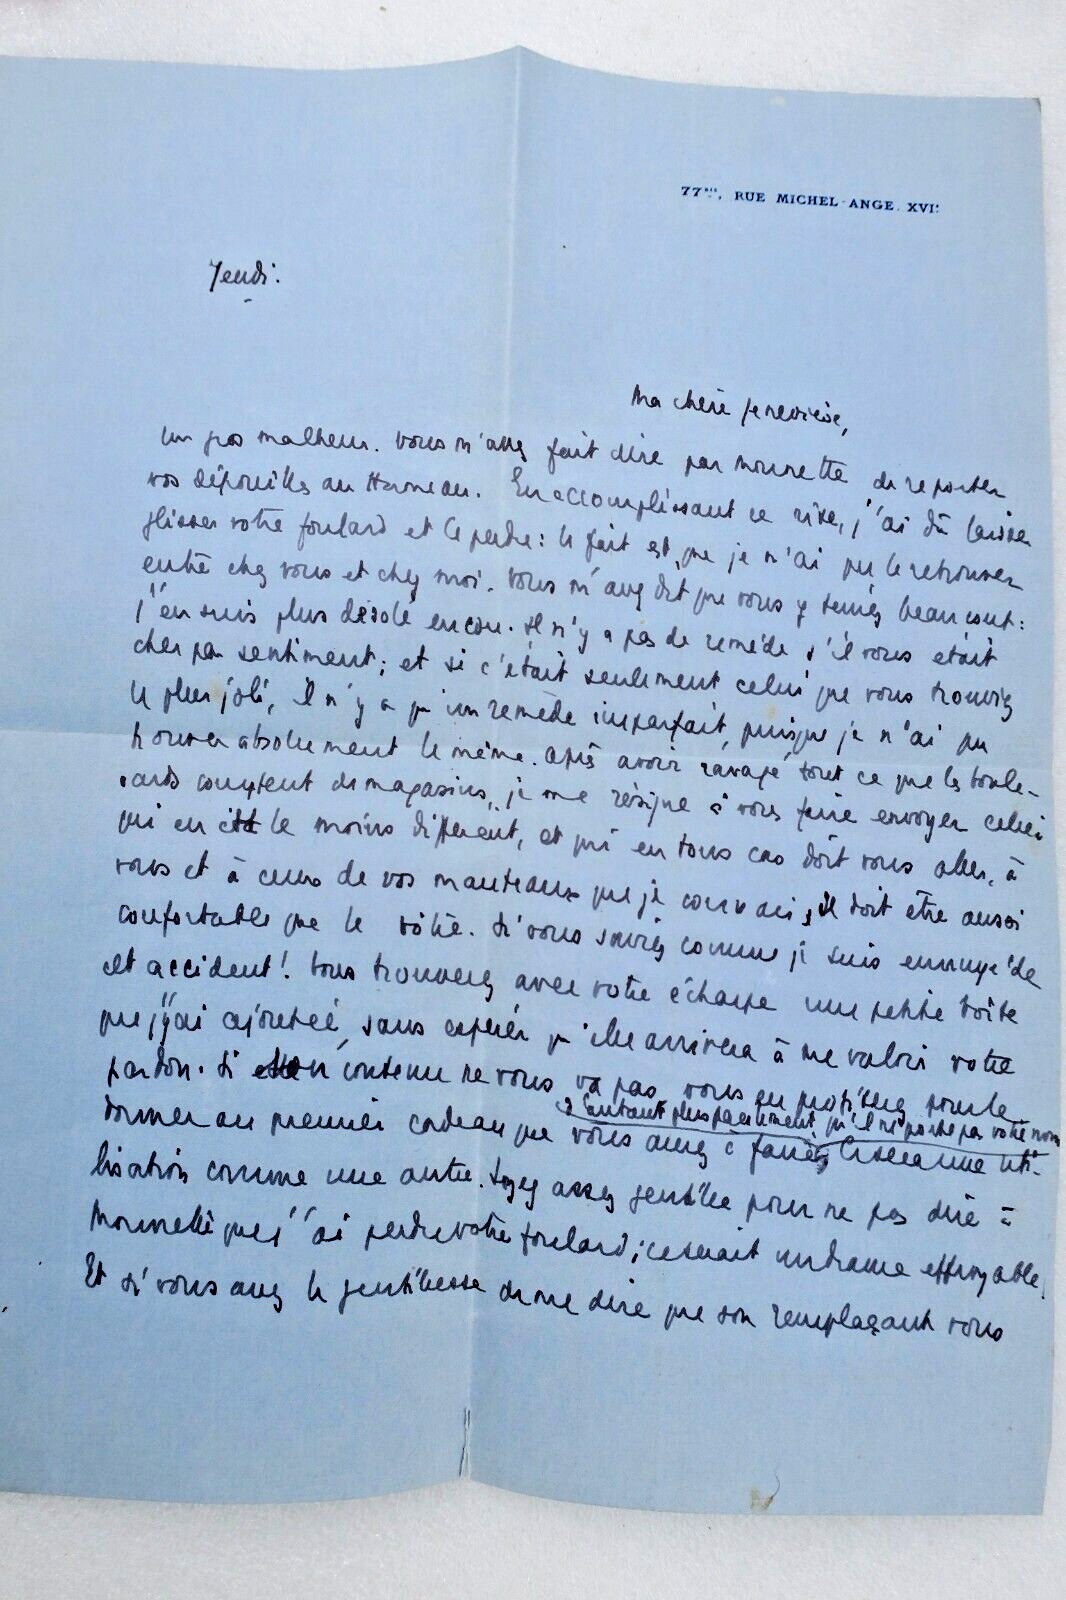 77bis, RUE MICHEL-ANGE. XVIe
Jeudi.
Ma chère Geneviève,
Un gros malheur. Vous m'avez fait dire par Mounette de reporter
vos dépouilles au Hameau. En accomplissant ce rite, j'ai dû laisser
glisser votre foulard et le perdre : le fait est, que je n'ai pu le retrouver
entre chez vous et chez moi. Vous m'avez dit que vous y teniez beaucoup :
j'en suis plus désolé encore. Il n'y a pas de remède s'il vous était
cher par sentiment ; et si c'était seulement celui que vous trouviez
le plus joli, il n'y a qu'un remède imparfait, puisque je n'ai pu
trouver absolument le même. Après avoir ravagé tout ce que les boule-
vards comptent de magasins, je me résigne à vous faire envoyer celui
qui en était le moins différent, et qui en tous cas doit vous aller, à
vous et à ceux de vos manteaux que je connais, il doit être aussi
confortable que le vôtre. Si vous saviez comme je suis ennuyé de
cet accident ! Vous trouverez avec votre écharpe une petite boîte
que j'y ai ajoutée, sans espérer qu'elle arrivera à me valoir votre
pardon. Si son contenu ne vous va pas, vous en profiterez pour le
d'autant plus facilement, qu'il ne porte pas votre nom
donner au premier cadeau que vous aurez à faire, ce sera une uti-
lisation comme une autre. Soyez assez gentille pour ne pas dire à
Mounette que j'ai perdu votre foulard ; ce serait un drame effroyable.
Et si vous avez la gentillesse de me dire que son remplaçant vous